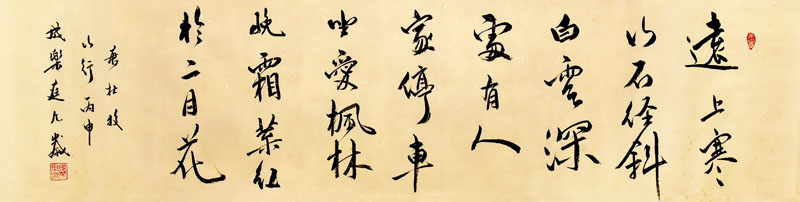 遠上寒
山石径斜
白雲深
處有人
家停車
坐愛楓林
晚霜葉紅
於二月花
唐杜牧
山行丙申